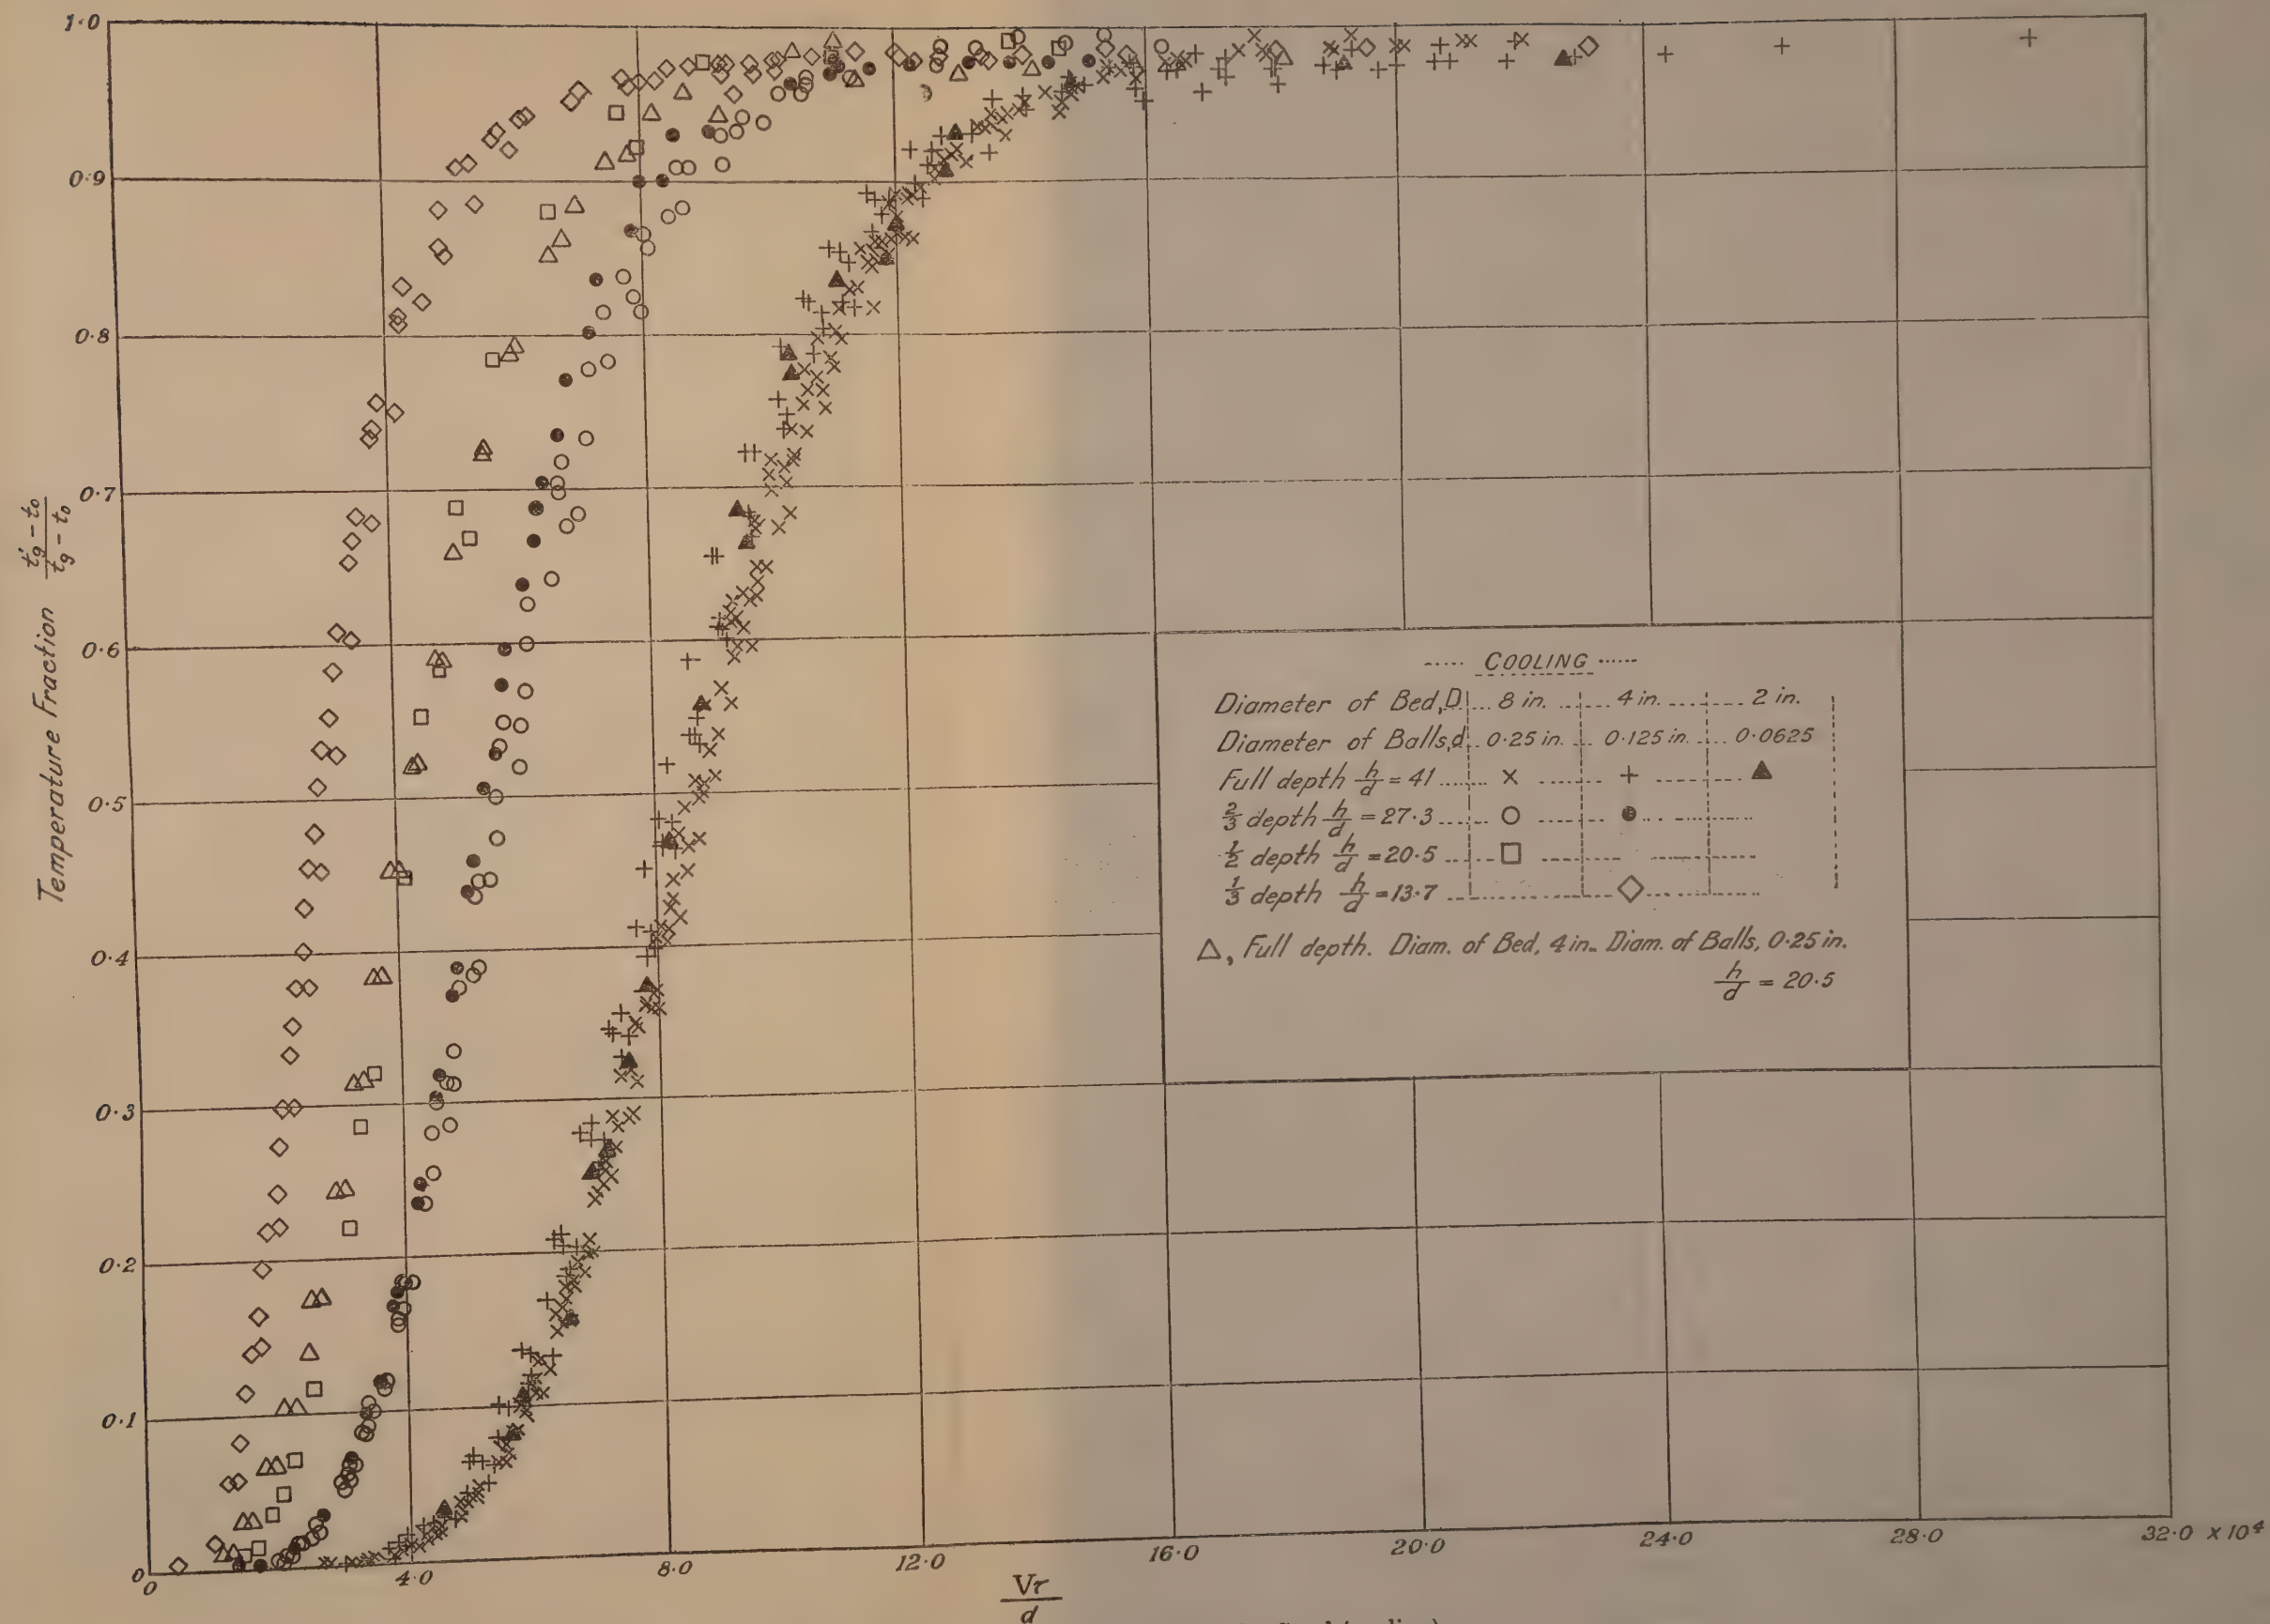 1·0
0·9
0·8
0·7
0·6
0·5
0·4
0·3
0·2
0·1
0
Temperature Fraction t'g − to / tg − to
0 4·0 8·0 12·0 16·0 20·0 24·0 28·0 32·0 × 10⁴
Vτ / d
COOLING
Diameter of Bed, D 8 in. 4 in. 2 in.
Diameter of Balls, d 0·25 in. 0·125 in. 0·0625
Full depth h/d = 41 × + ▲
2/3 depth h/d = 27·3 ○ ●
1/2 depth h/d = 20·5 □
1/3 depth h/d = 13·7 ◇
△, Full depth. Diam. of Bed, 4 in. Diam. of Balls, 0·25 in.
h/d = 20·5